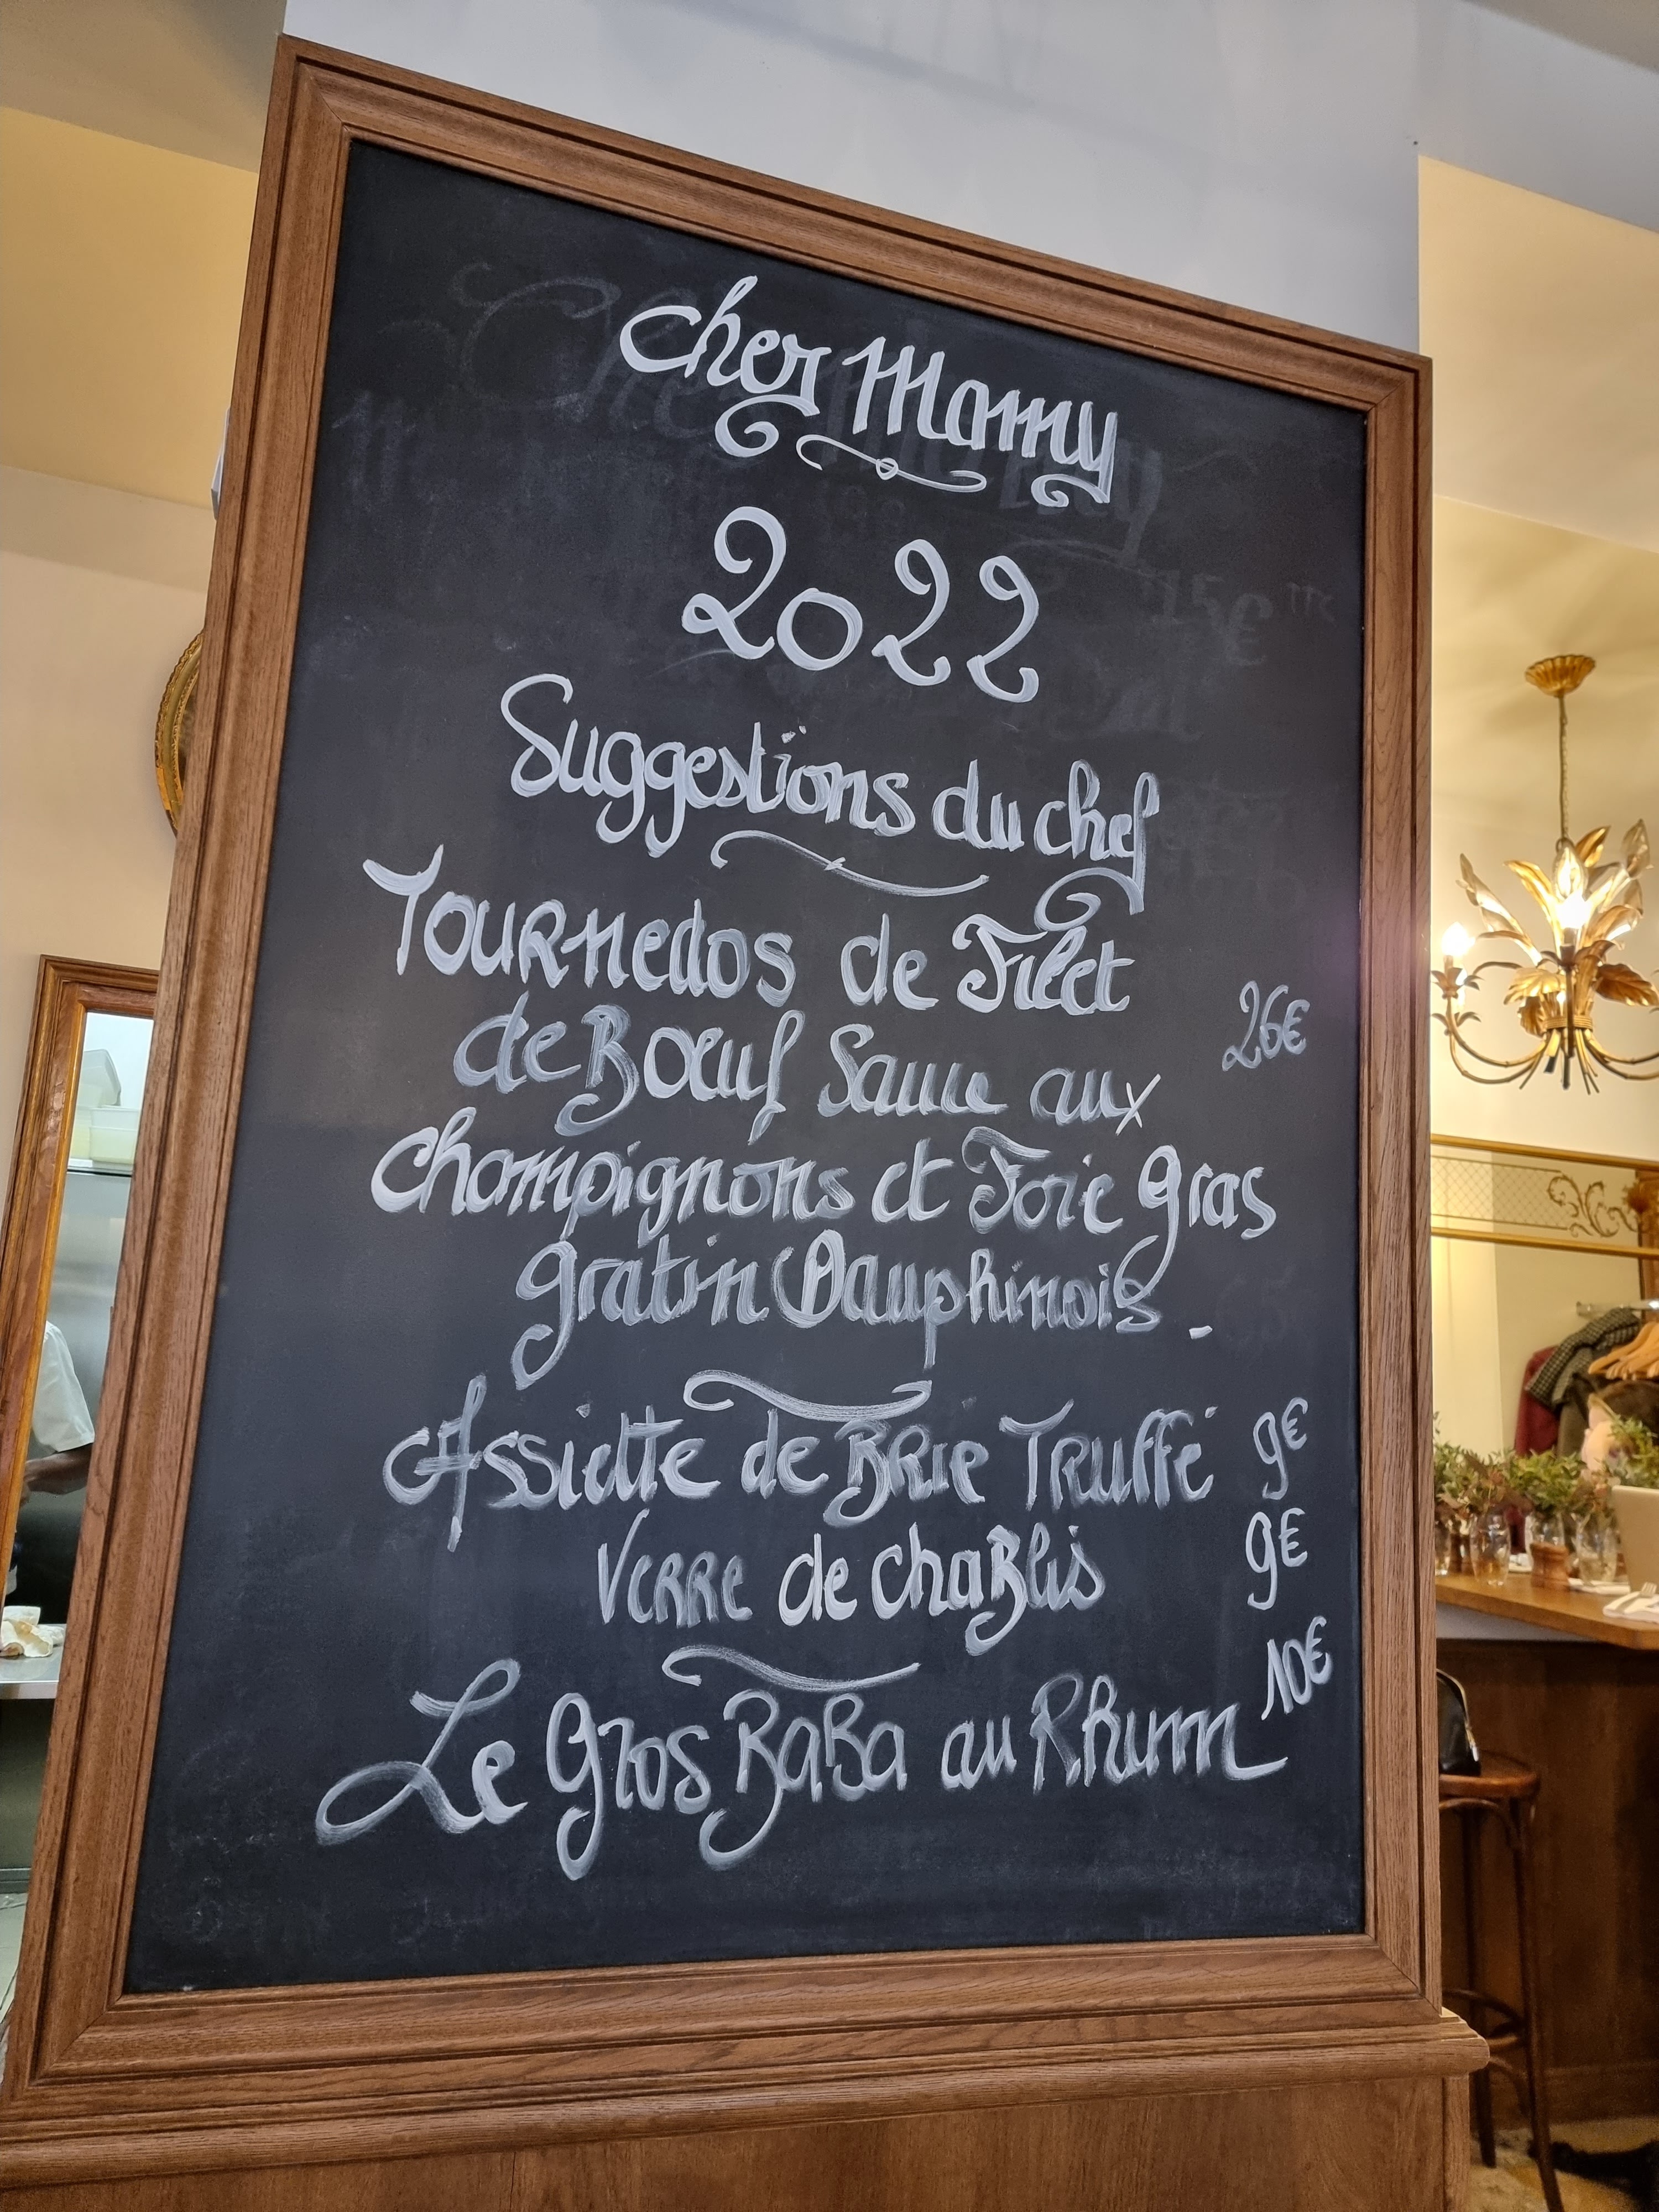 Chez Mamy
2022
Suggestions du chef
Tournedos de Filet
de Bœuf Sauce aux
26€
champignons et Foie Gras
gratin Dauphinois.
Assiette de Brie Truffé 9€
Verre de chaBlis 9€
10€
Le gros BaBa au Rhum